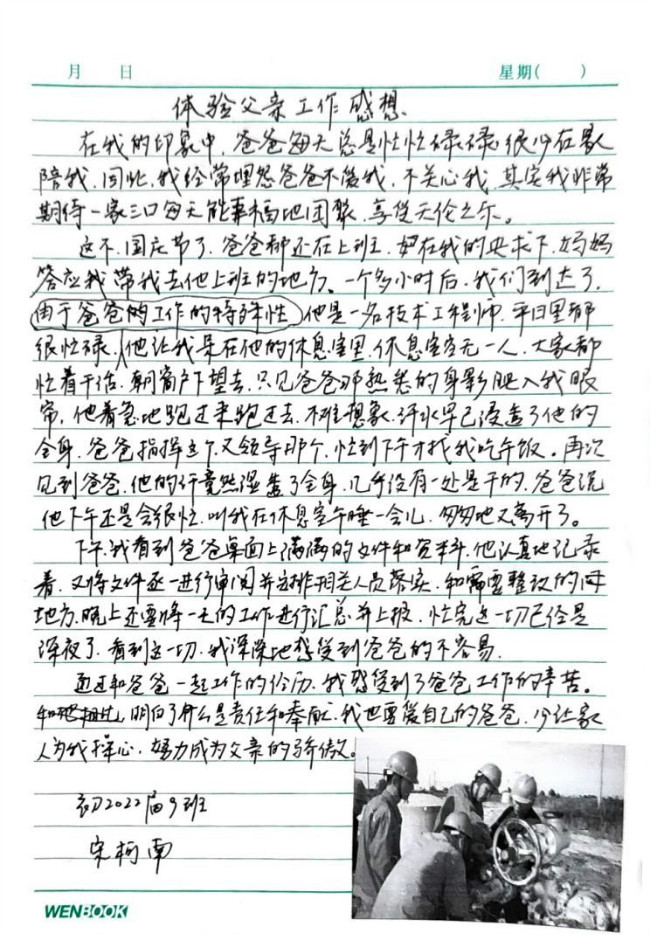 月 日 星期( )
体验父亲工作感想
在我的印象中,爸爸每天总是忙忙碌碌,很少在家
陪我,因此,我经常埋怨爸爸不爱我,不关心我,其实我非常
期待一家三口每天能幸福地团聚,享受天伦之乐。
这不,国庆节了,爸爸都还在上班,妈在我的央求下,妈妈
答应我带我去他上班的地方。一个多小时后,我们到达了,
由于爸爸的工作的特殊性,他是一名技术工程师,平日里都
很忙碌,他让我呆在他的休息室里,休息室空无一人,大家都
忙着干活,朝窗户下望去,只见爸爸那熟悉的身影映入我眼
帘,他着急地跑过来跑过去,不难想象,汗水早已浸透了他的
全身,爸爸指挥这个又领导那个,忙到下午才找我吃午饭。再次
见到爸爸,他的汗竟然湿透了全身,几乎没有一处是干的,爸爸说
他下午还是会很忙,叫我在休息室午睡一会儿,匆匆地又离开了。
下午,我看到爸爸桌面上满满的文件和资料,他认真地记录
着,又将文件逐一进行审阅并安排相关人员落实,和需要整改的
地方,晚上还要将一天的工作进行汇总并上报,忙完这一切已经是
深夜了,看到这一切,我深深地感受到爸爸的不容易。
通过和爸爸一起工作的经历,我感受到了爸爸工作的辛苦。
明白了什么是责任和奉献,我也要爱自己的爸爸,少让家
人为我操心,努力成为父亲的骄傲。
初2022届9班
宋柯南
WENBOOK